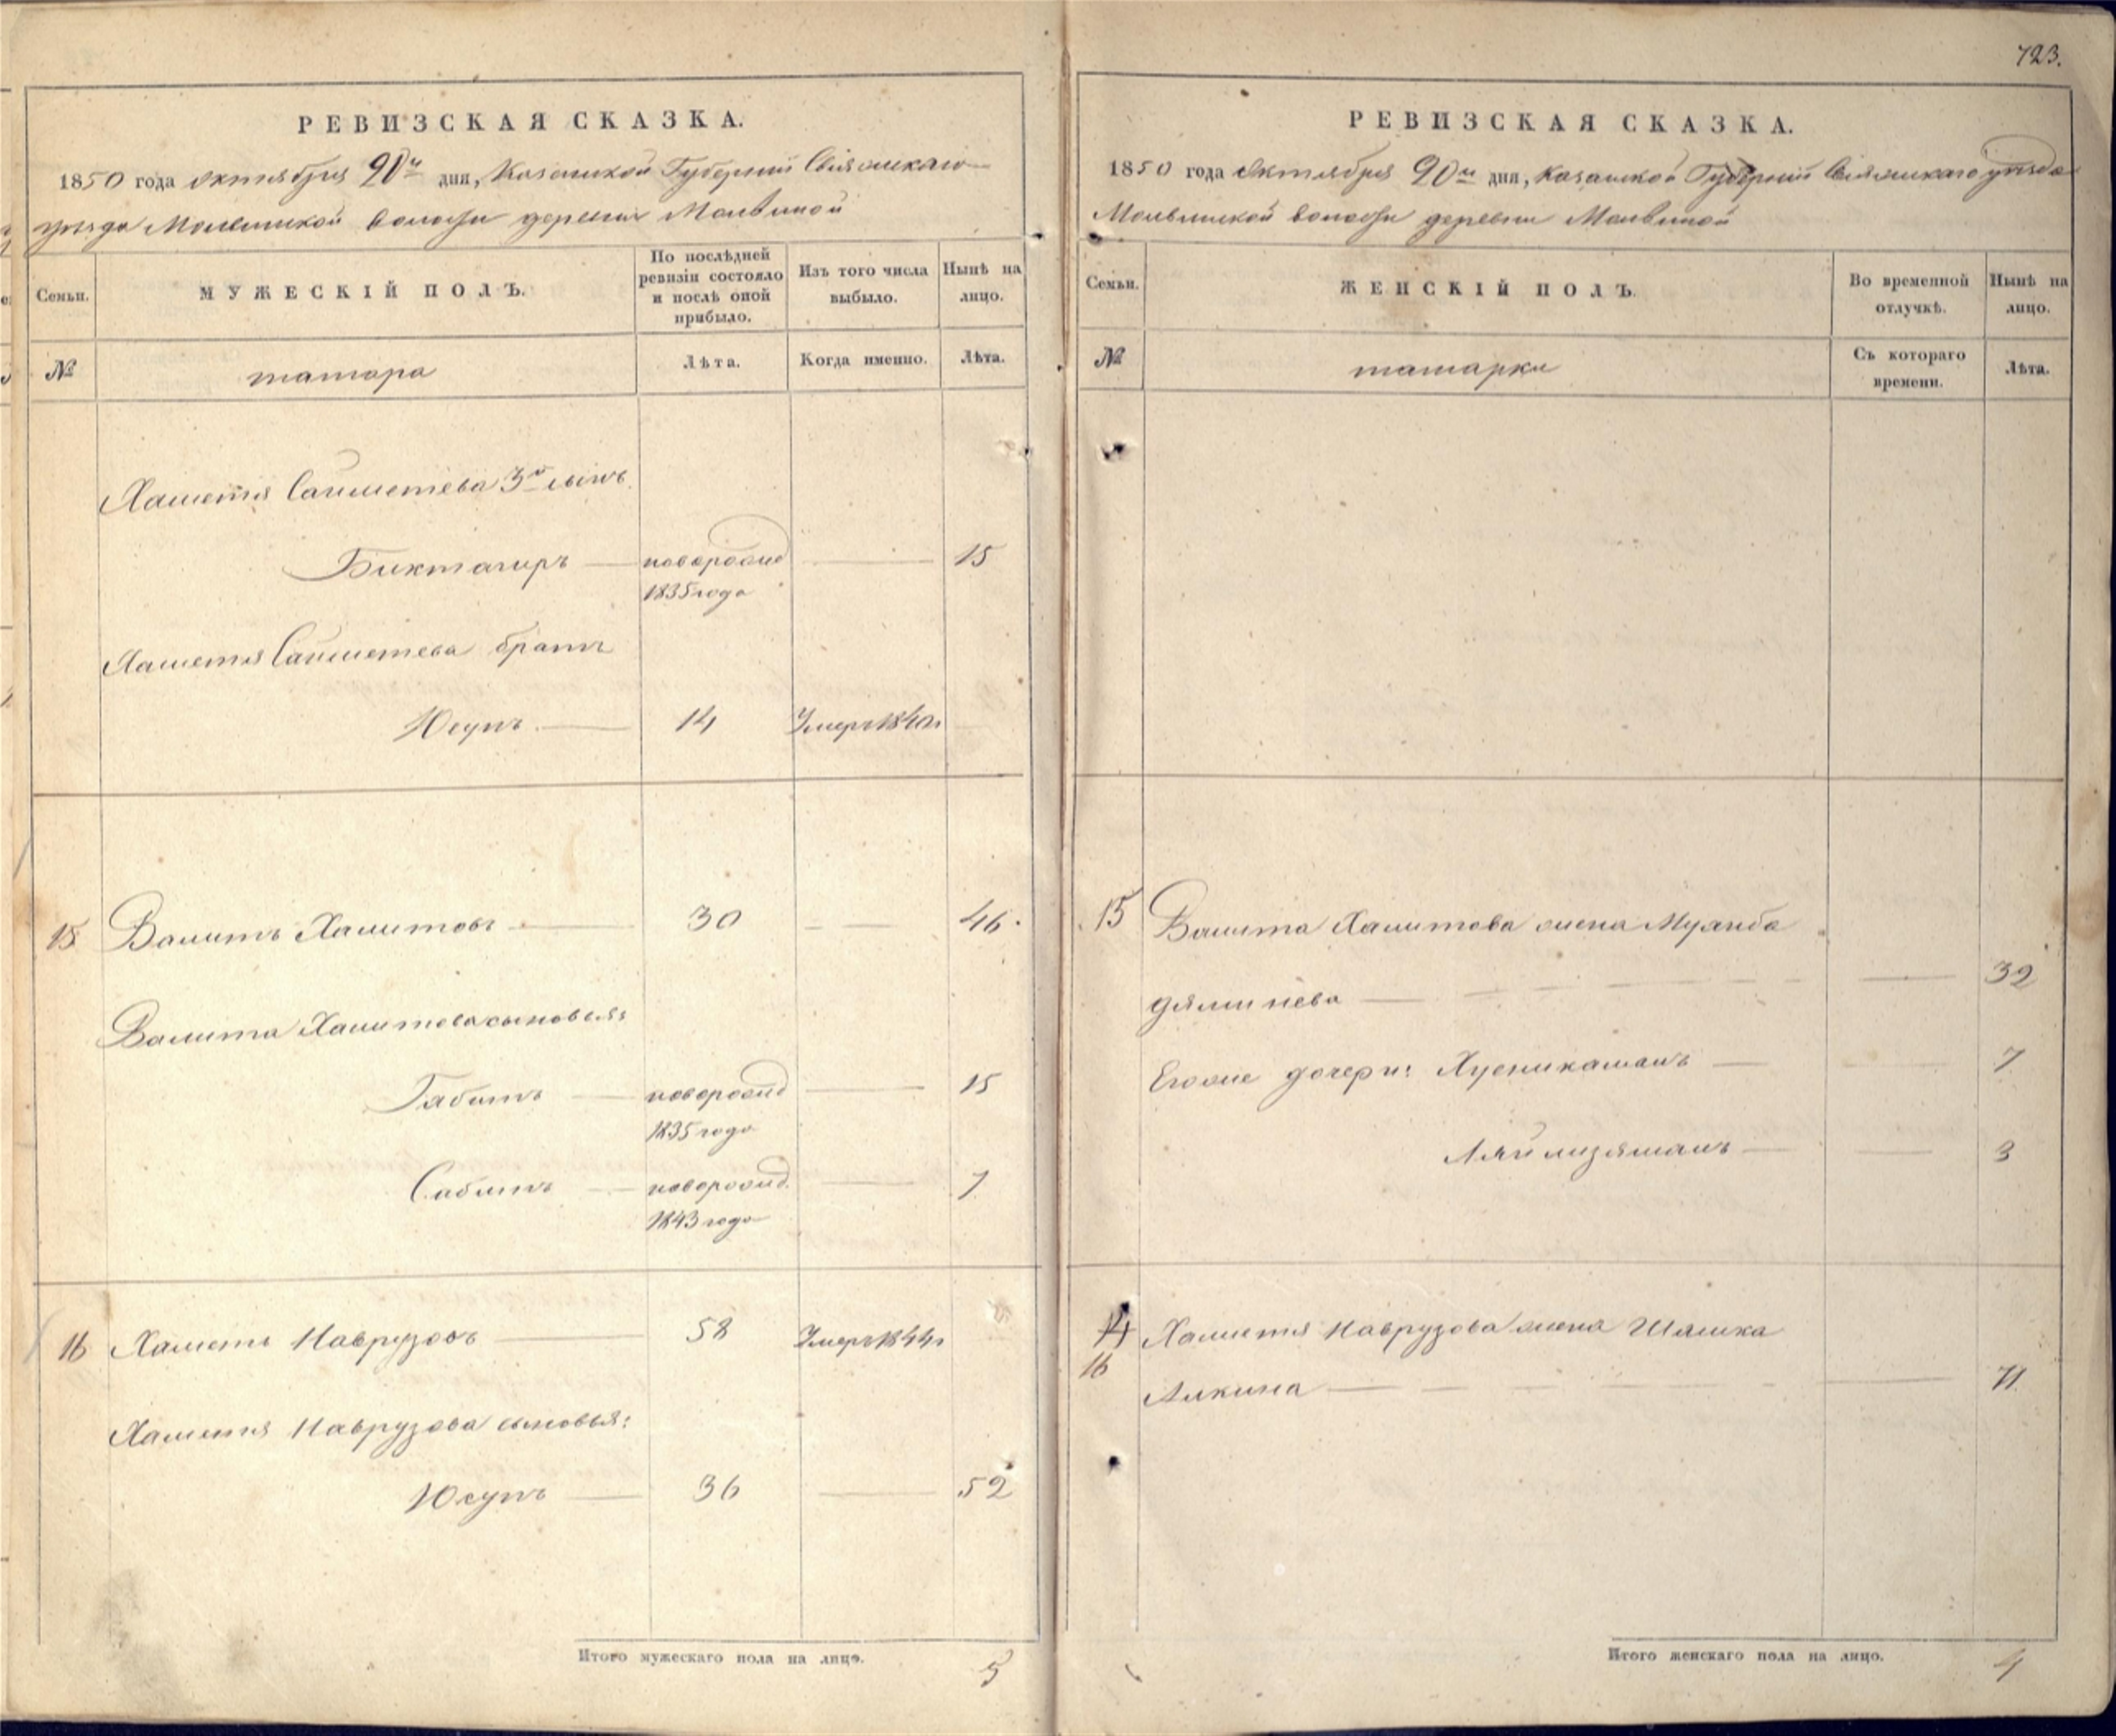 723.
РЕВИЗСКАЯ СКАЗКА.
1850 года октября 20го дня, Казанской Губерніи Свіяжскаго
уѣзда Молвинской волости деревни Молвиной
Семьи.
МУЖЕСКІЙ ПОЛЪ.
По послѣдней ревизіи состояло и послѣ оной прибыло.
Изъ того числа выбыло.
Нынѣ на лицо.
№
татара
Лѣта.
Когда именно.
Лѣта.
Хаметя Сайметева 3й сынъ
Биктагиръ — новорожд — 15
1835 года
Хаметя Сайметева братъ
Юсупъ — 14 Умеръ 1840г
15 Валитъ Халитовъ — 30 — 46.
Валита Халитова сыновья:
Габитъ — новорожд — 15
1835 года
Сабитъ — новорожд. — 7
1843 года
16 Хаметь Наврузовъ — 58 Умеръ 1844г
Хаметя Наврузова сыновья:
Юсупъ — 36 — 52
Итого мужескаго пола на лицо. 5
РЕВИЗСКАЯ СКАЗКА.
1850 года Октября 20го дня, Казанской Губерніи Свіяжскаго уѣзда
Молвинской волости деревни Молвиной
Семьи.
ЖЕНСКІЙ ПОЛЪ.
Во временной отлучкѣ.
Нынѣ на лицо.
№
татарки
Съ котораго времени.
Лѣта.
15 Валита Халитова жена Муянба
— 32
Егоже дочери: Хусникамалъ — 7
Ляйлизямалъ — 3
14 Хаметя Наврузова жена Шамка
16
Алкина — 71
Итого женскаго пола на лицо. 4